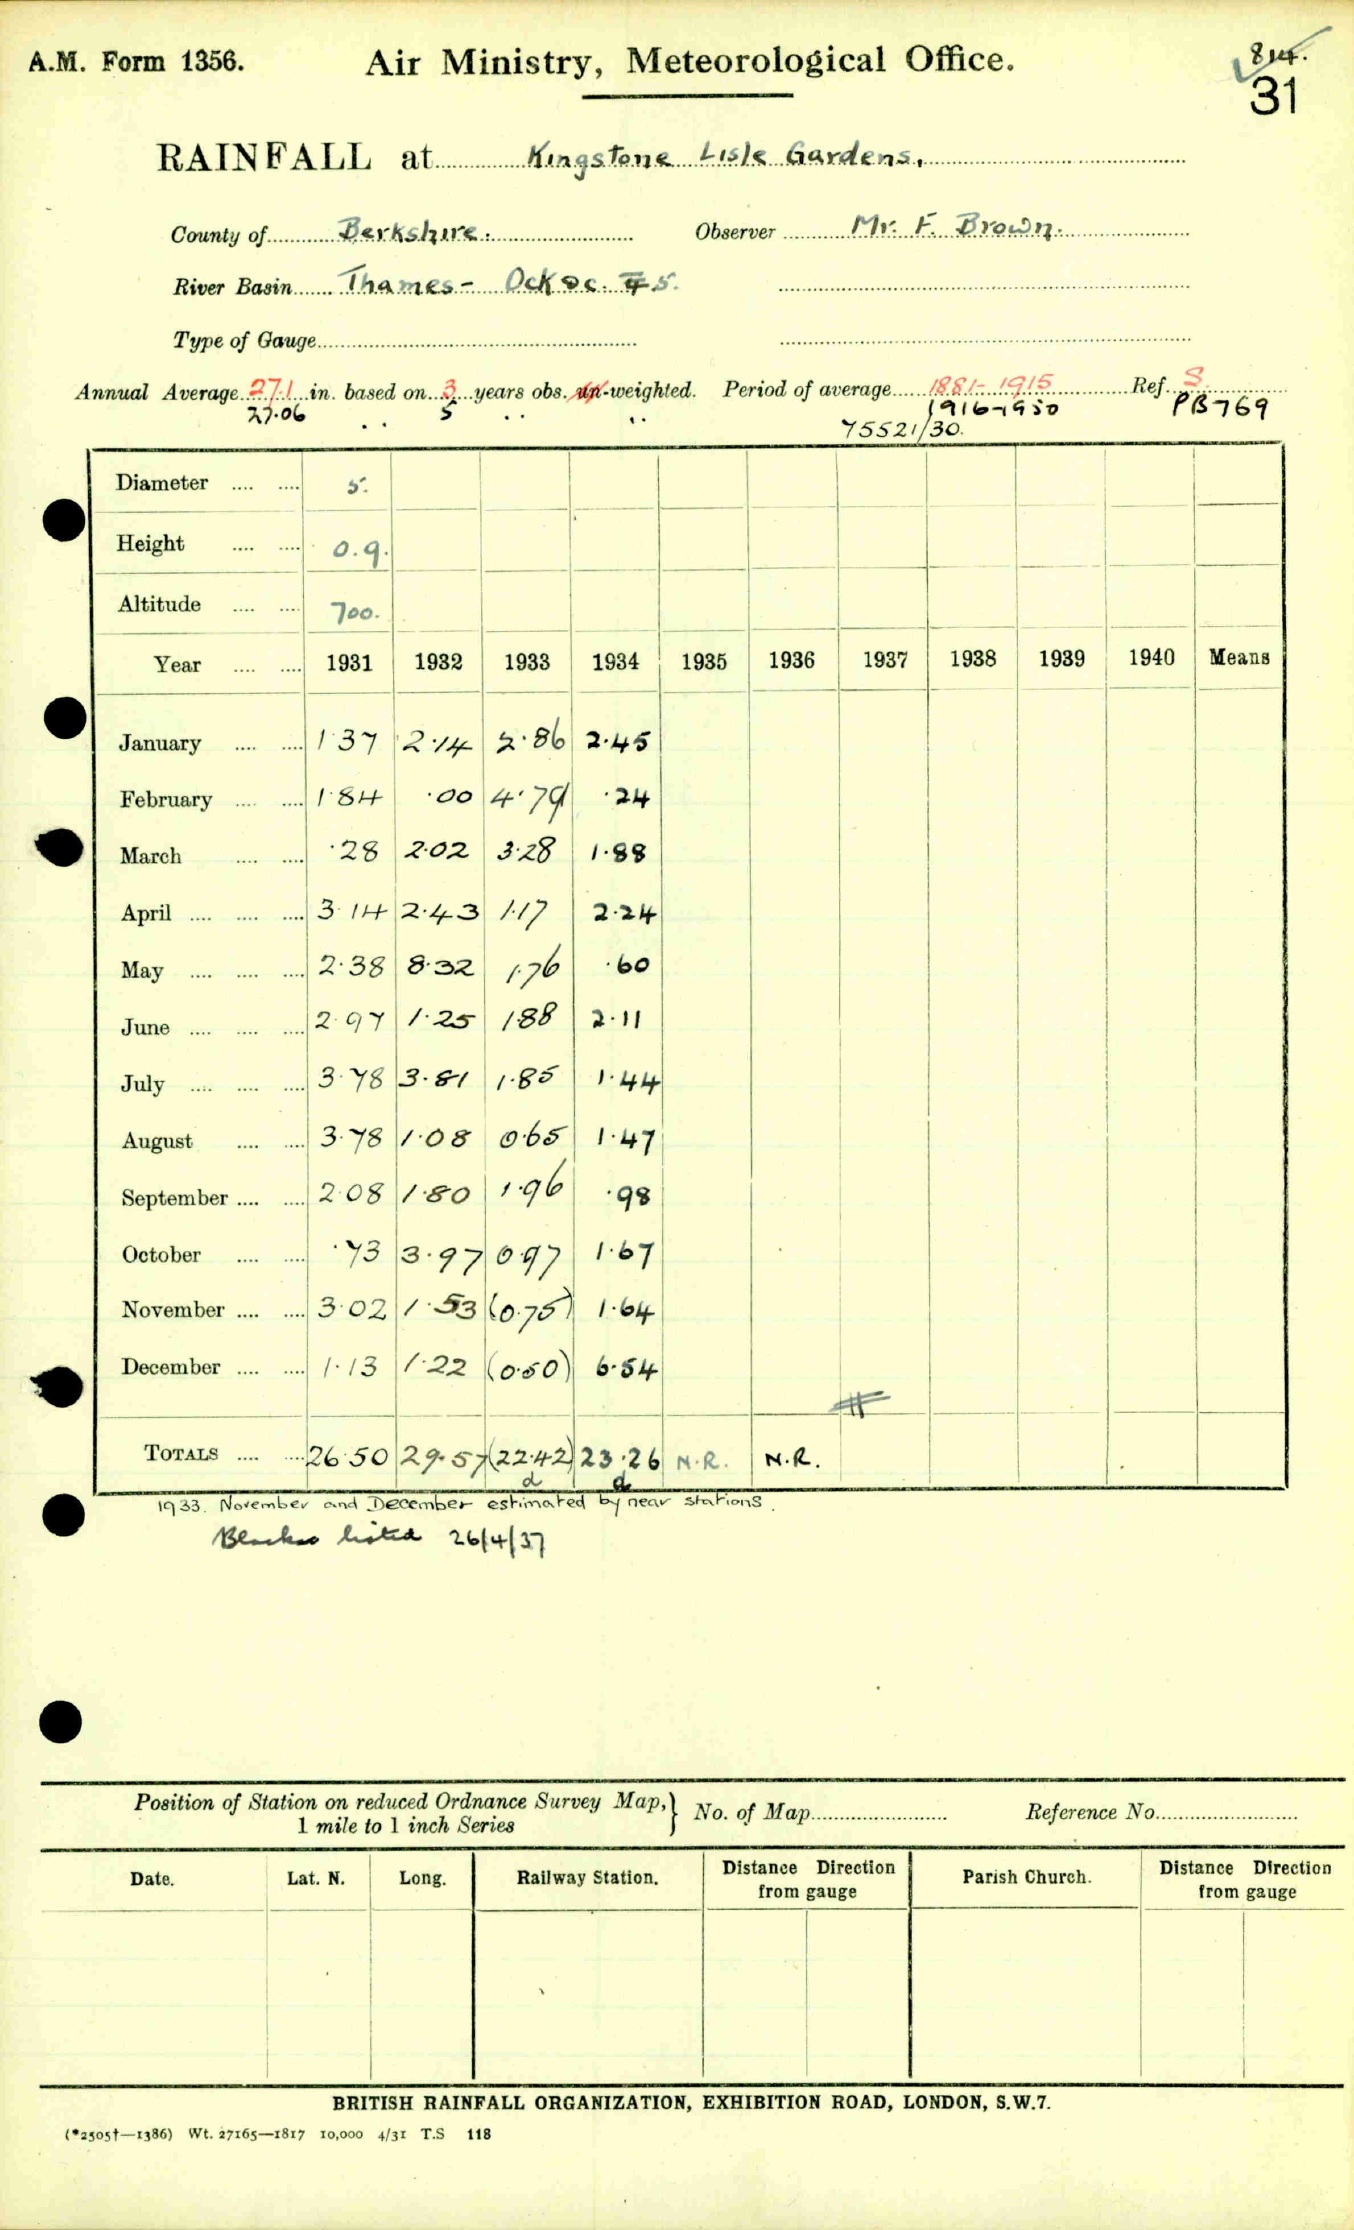 A.M. Form 1356.
Air Ministry, Meteorological Office.
814.
31
RAINFALL at Kingstone Lisle Gardens,
County of Berkshire.
Observer Mr. F. Brown.
River Basin Thames - Ock &c. 5.
Type of Gauge
Annual Average 27.1 in. based on 3 years obs. un-weighted. Period of average 1881-1915 Ref. S.
27.06 .. 5 .. .. 1916-1950 PB769
75521/30.
Diameter .... .... 5.
Height .... .... 0.9.
Altitude .... .... 700.
Year .... .... 1931 1932 1933 1934 1935 1936 1937 1938 1939 1940 Means
January .... .... 1.37 2.14 2.86 2.45
February .... .... 1.84 .00 4.79 .24
March .... .... .28 2.02 3.28 1.88
April .... .... .... 3.14 2.43 1.17 2.24
May .... .... .... 2.38 8.32 1.76 .60
June .... .... .... 2.97 1.25 1.88 2.11
July .... .... .... 3.78 3.81 1.85 1.44
August .... .... 3.78 1.08 0.65 1.47
September .... .... 2.08 1.80 1.96 .98
October .... .... .73 3.97 0.97 1.67
November .... .... 3.02 1.53 (0.75) 1.64
December .... .... 1.13 1.22 (0.50) 6.54
TOTALS .... .... 26.50 29.57 (22.42) 23.26 N.R. N.R.
d d
1933. November and December estimated by near stations.
listed 26/4/37
Position of Station on reduced Ordnance Survey Map,
1 mile to 1 inch Series
} No. of Map Reference No.
Date. Lat. N. Long. Railway Station. Distance Direction from gauge Parish Church. Distance Direction from gauge
BRITISH RAINFALL ORGANIZATION, EXHIBITION ROAD, LONDON, S.W.7.
(*2505†—1386) Wt. 27165—1817 10,000 4/31 T.S 118